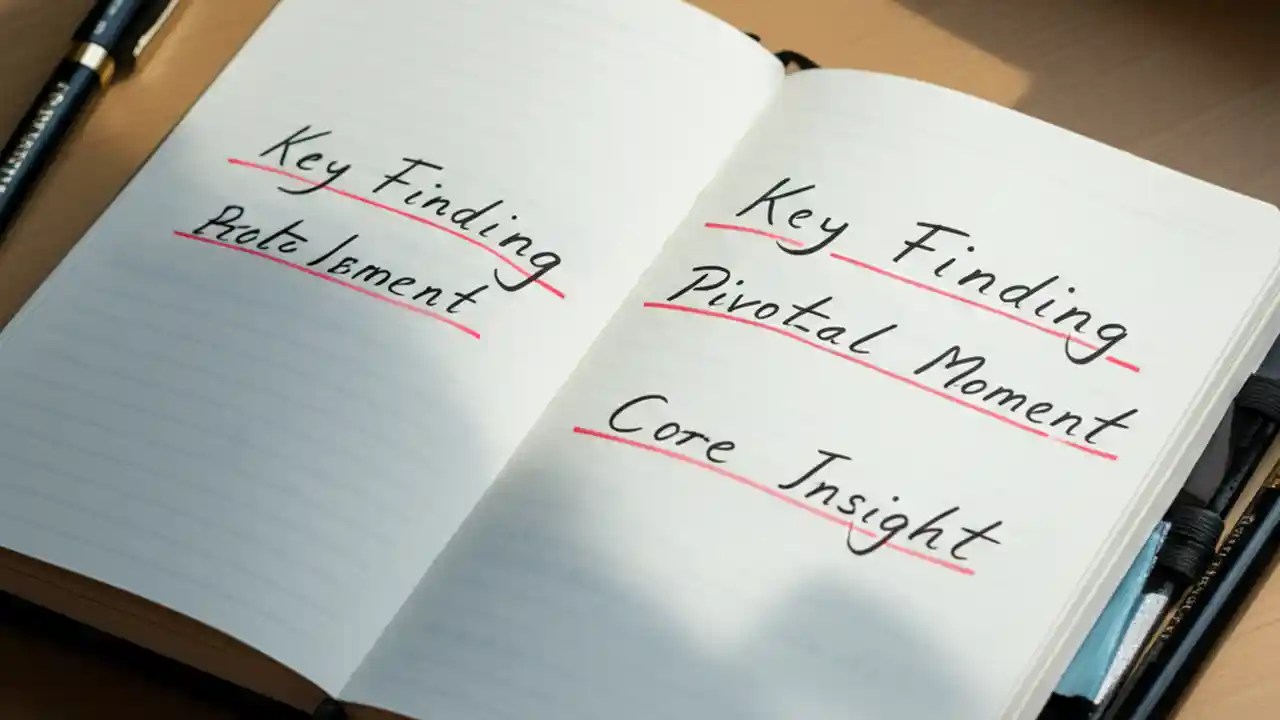 Key Finding
Key Finding
Pivotal Moment
Core Insight